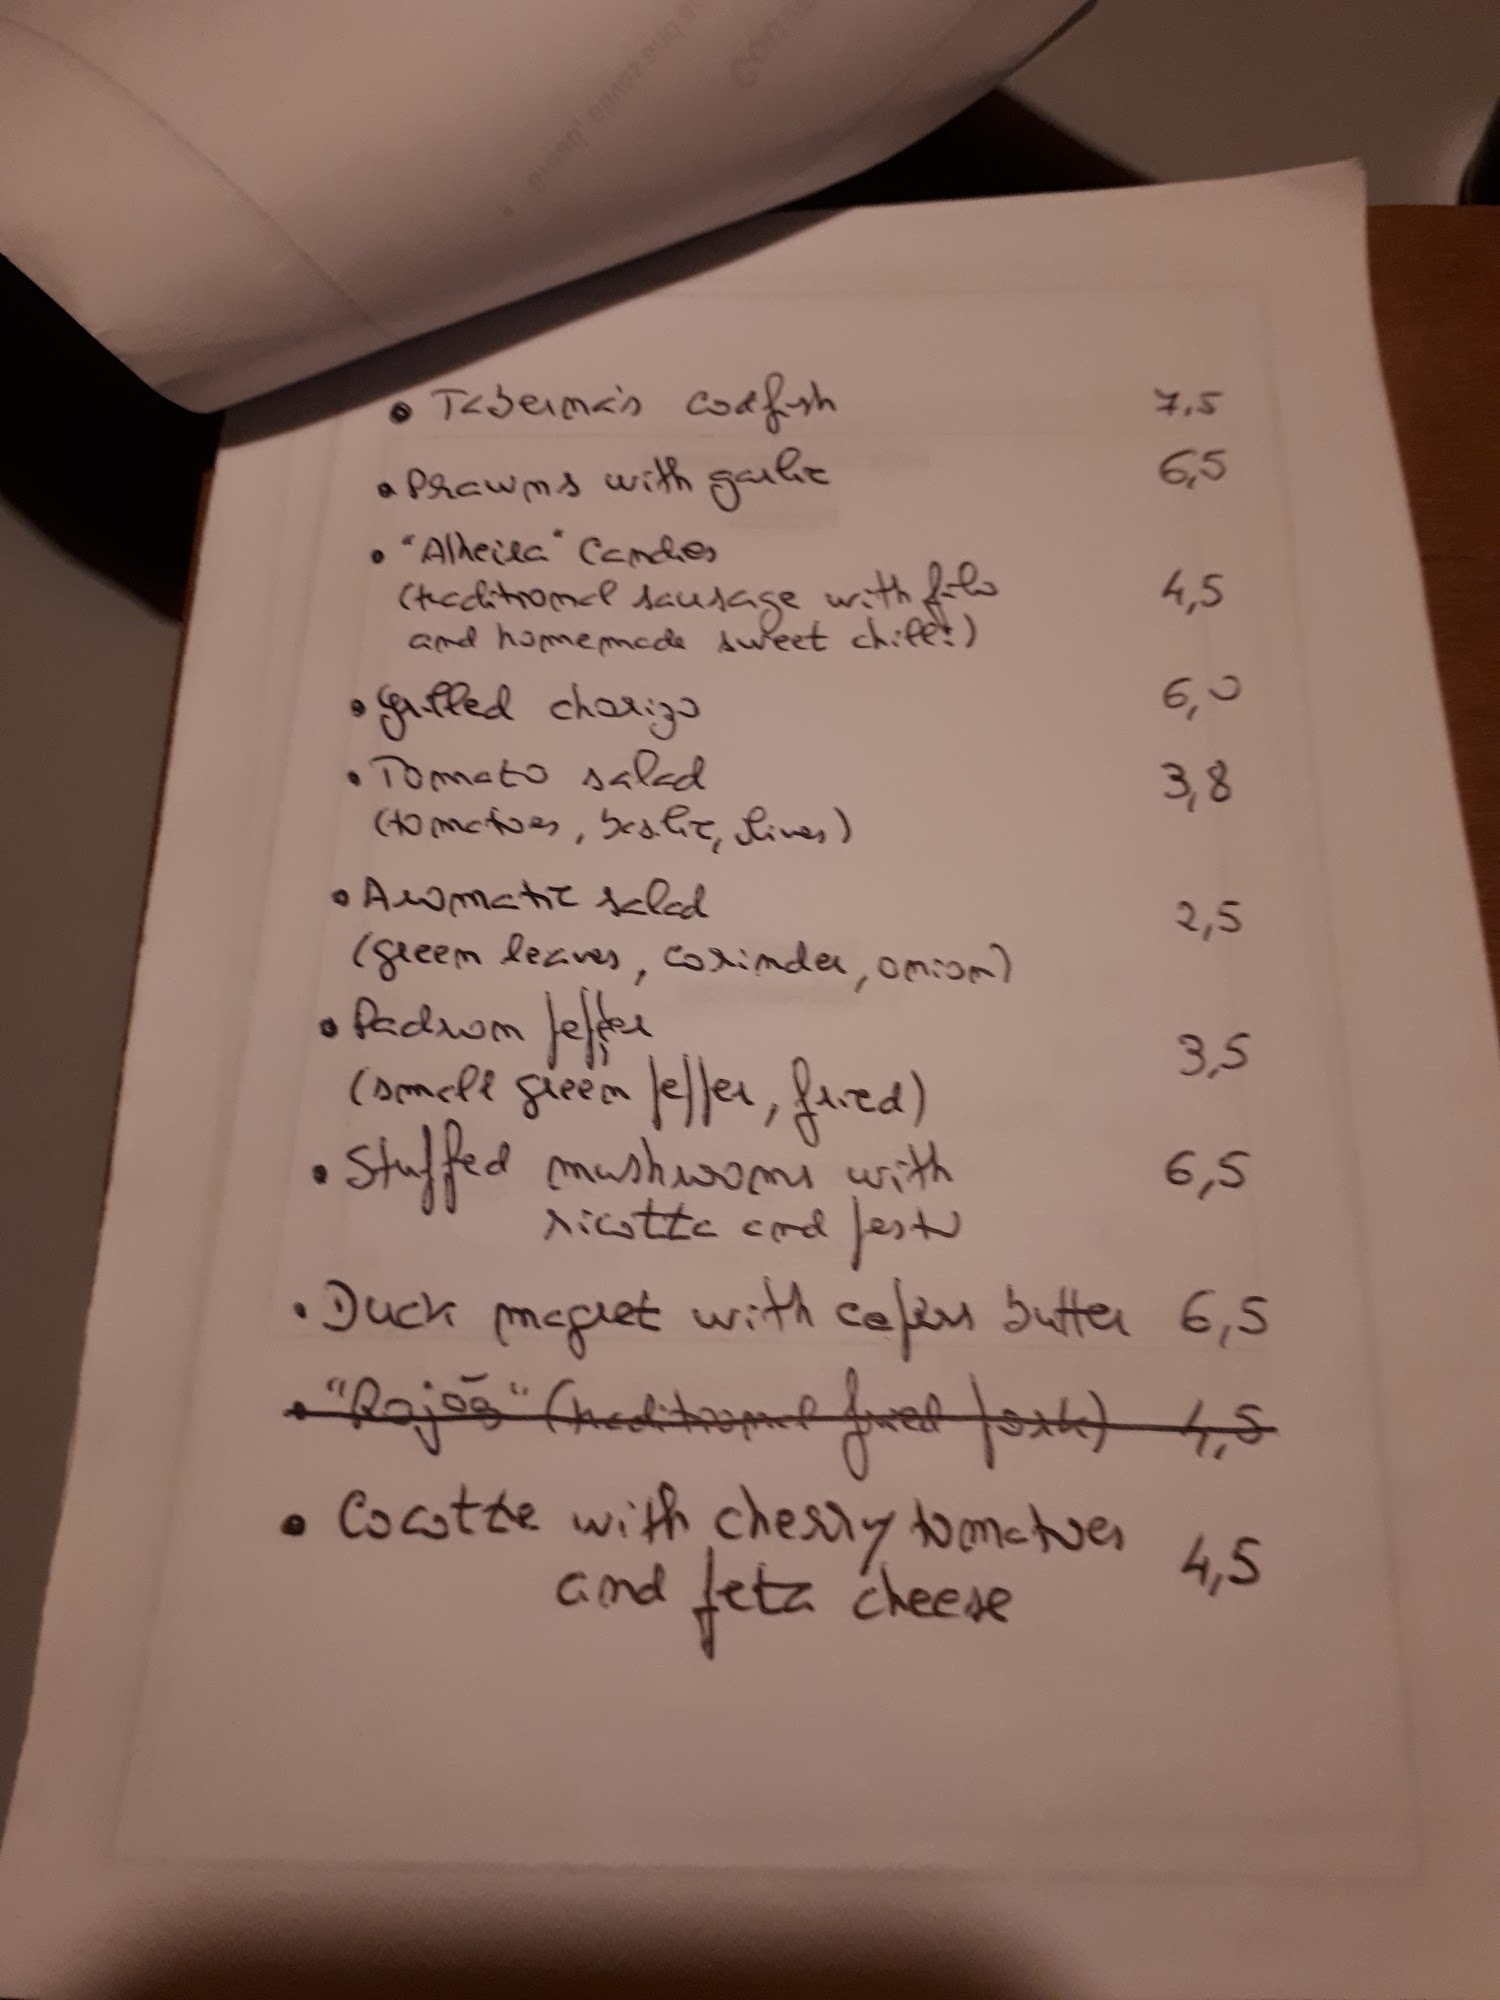 • Taberna's codfish 7,5
• Prawns with garlic 6,5
• "Alheira" Candies
(traditional sausage with filo 4,5
and homemade sweet chilli)
• Grilled chorizo 6,0
• Tomato salad 3,8
(tomatoes, baslic, olives)
• Aromatic salad 2,5
(green leaves, corinder, onion)
• Padron pepper 3,5
(small green pepper, fried)
• Stuffed mushrooms with 6,5
ricotta and pesto
• Duck magret with cafés butter 6,5
• "Rojõs" (traditional fried pork) 4,5
• Cocotte with cherry tomatoes 4,5
and feta cheese